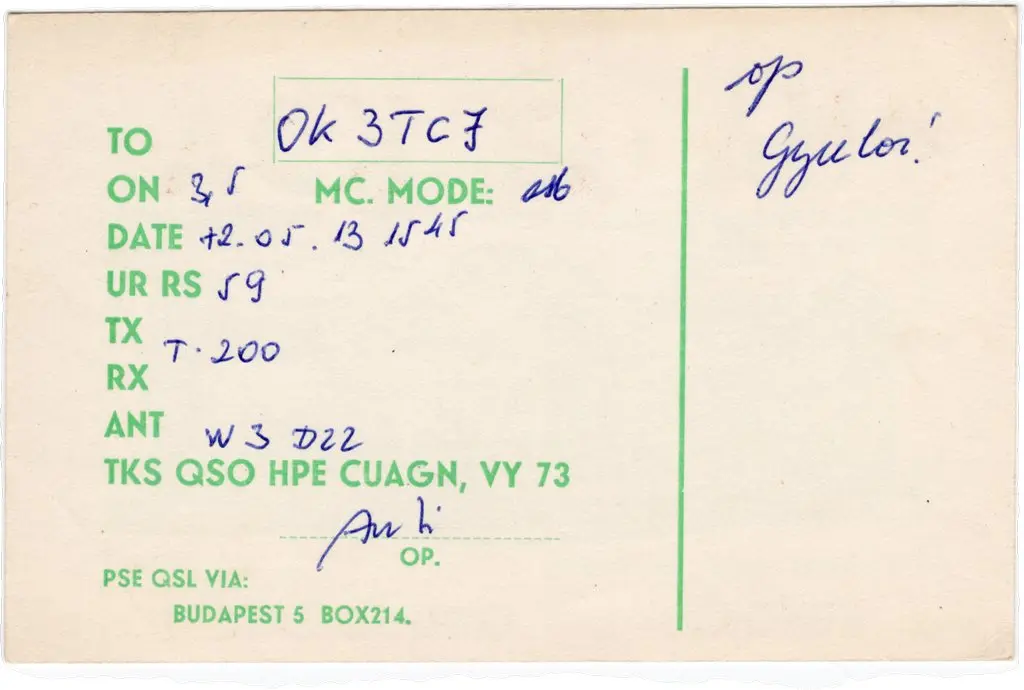 TO OK 3TCJ
ON 3,5 MC. MODE: ssb
DATE 72.05.13 1545
UR RS 59
TX
T.200
RX
ANT W 3 DZZ
TKS QSO HPE CUAGN, VY 73
OP.
PSE QSL VIA:
BUDAPEST 5 BOX214.
op